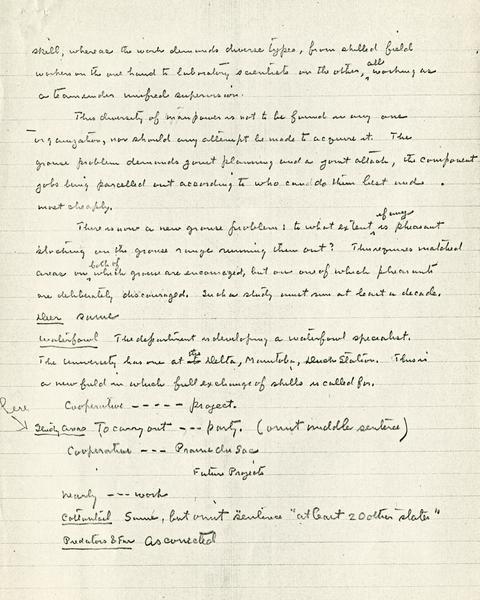 skill, whereas the work demands diverse types, from skilled field
workers on the one hand to laboratory scientists on the other, all working as
a team under unified supervision.
This diversity of manpower is not to be found in any one
organization, nor should any attempt be made to acquire it. The
grouse problem demands joint planning and a joint attack, the component
jobs being parcelled out according to who can do them best and
most cheaply.
There is now a new grouse problem: to what extent, if any, is pheasant
stocking on the grouse range running them out? This requires matched
areas on both of which grouse are encouraged, but on one of which pheasants
are deliberately discouraged. Such a study must run at least a decade.
Deer same
Waterfowl The department is developing a waterfowl specialist.
The University has one at the Delta, Manitoba, Duck Station. This is
a new field in which full exchange of skills is called for.
Cooperative ----- project.
here
Study Areas To carry out --- party. (omit middle sentence)
Cooperative --- Prairie du Sac
Future Projects
nearly --- work
Cottontail Same, but omit sentence "at least 20 other states"
Predators & Fur As corrected